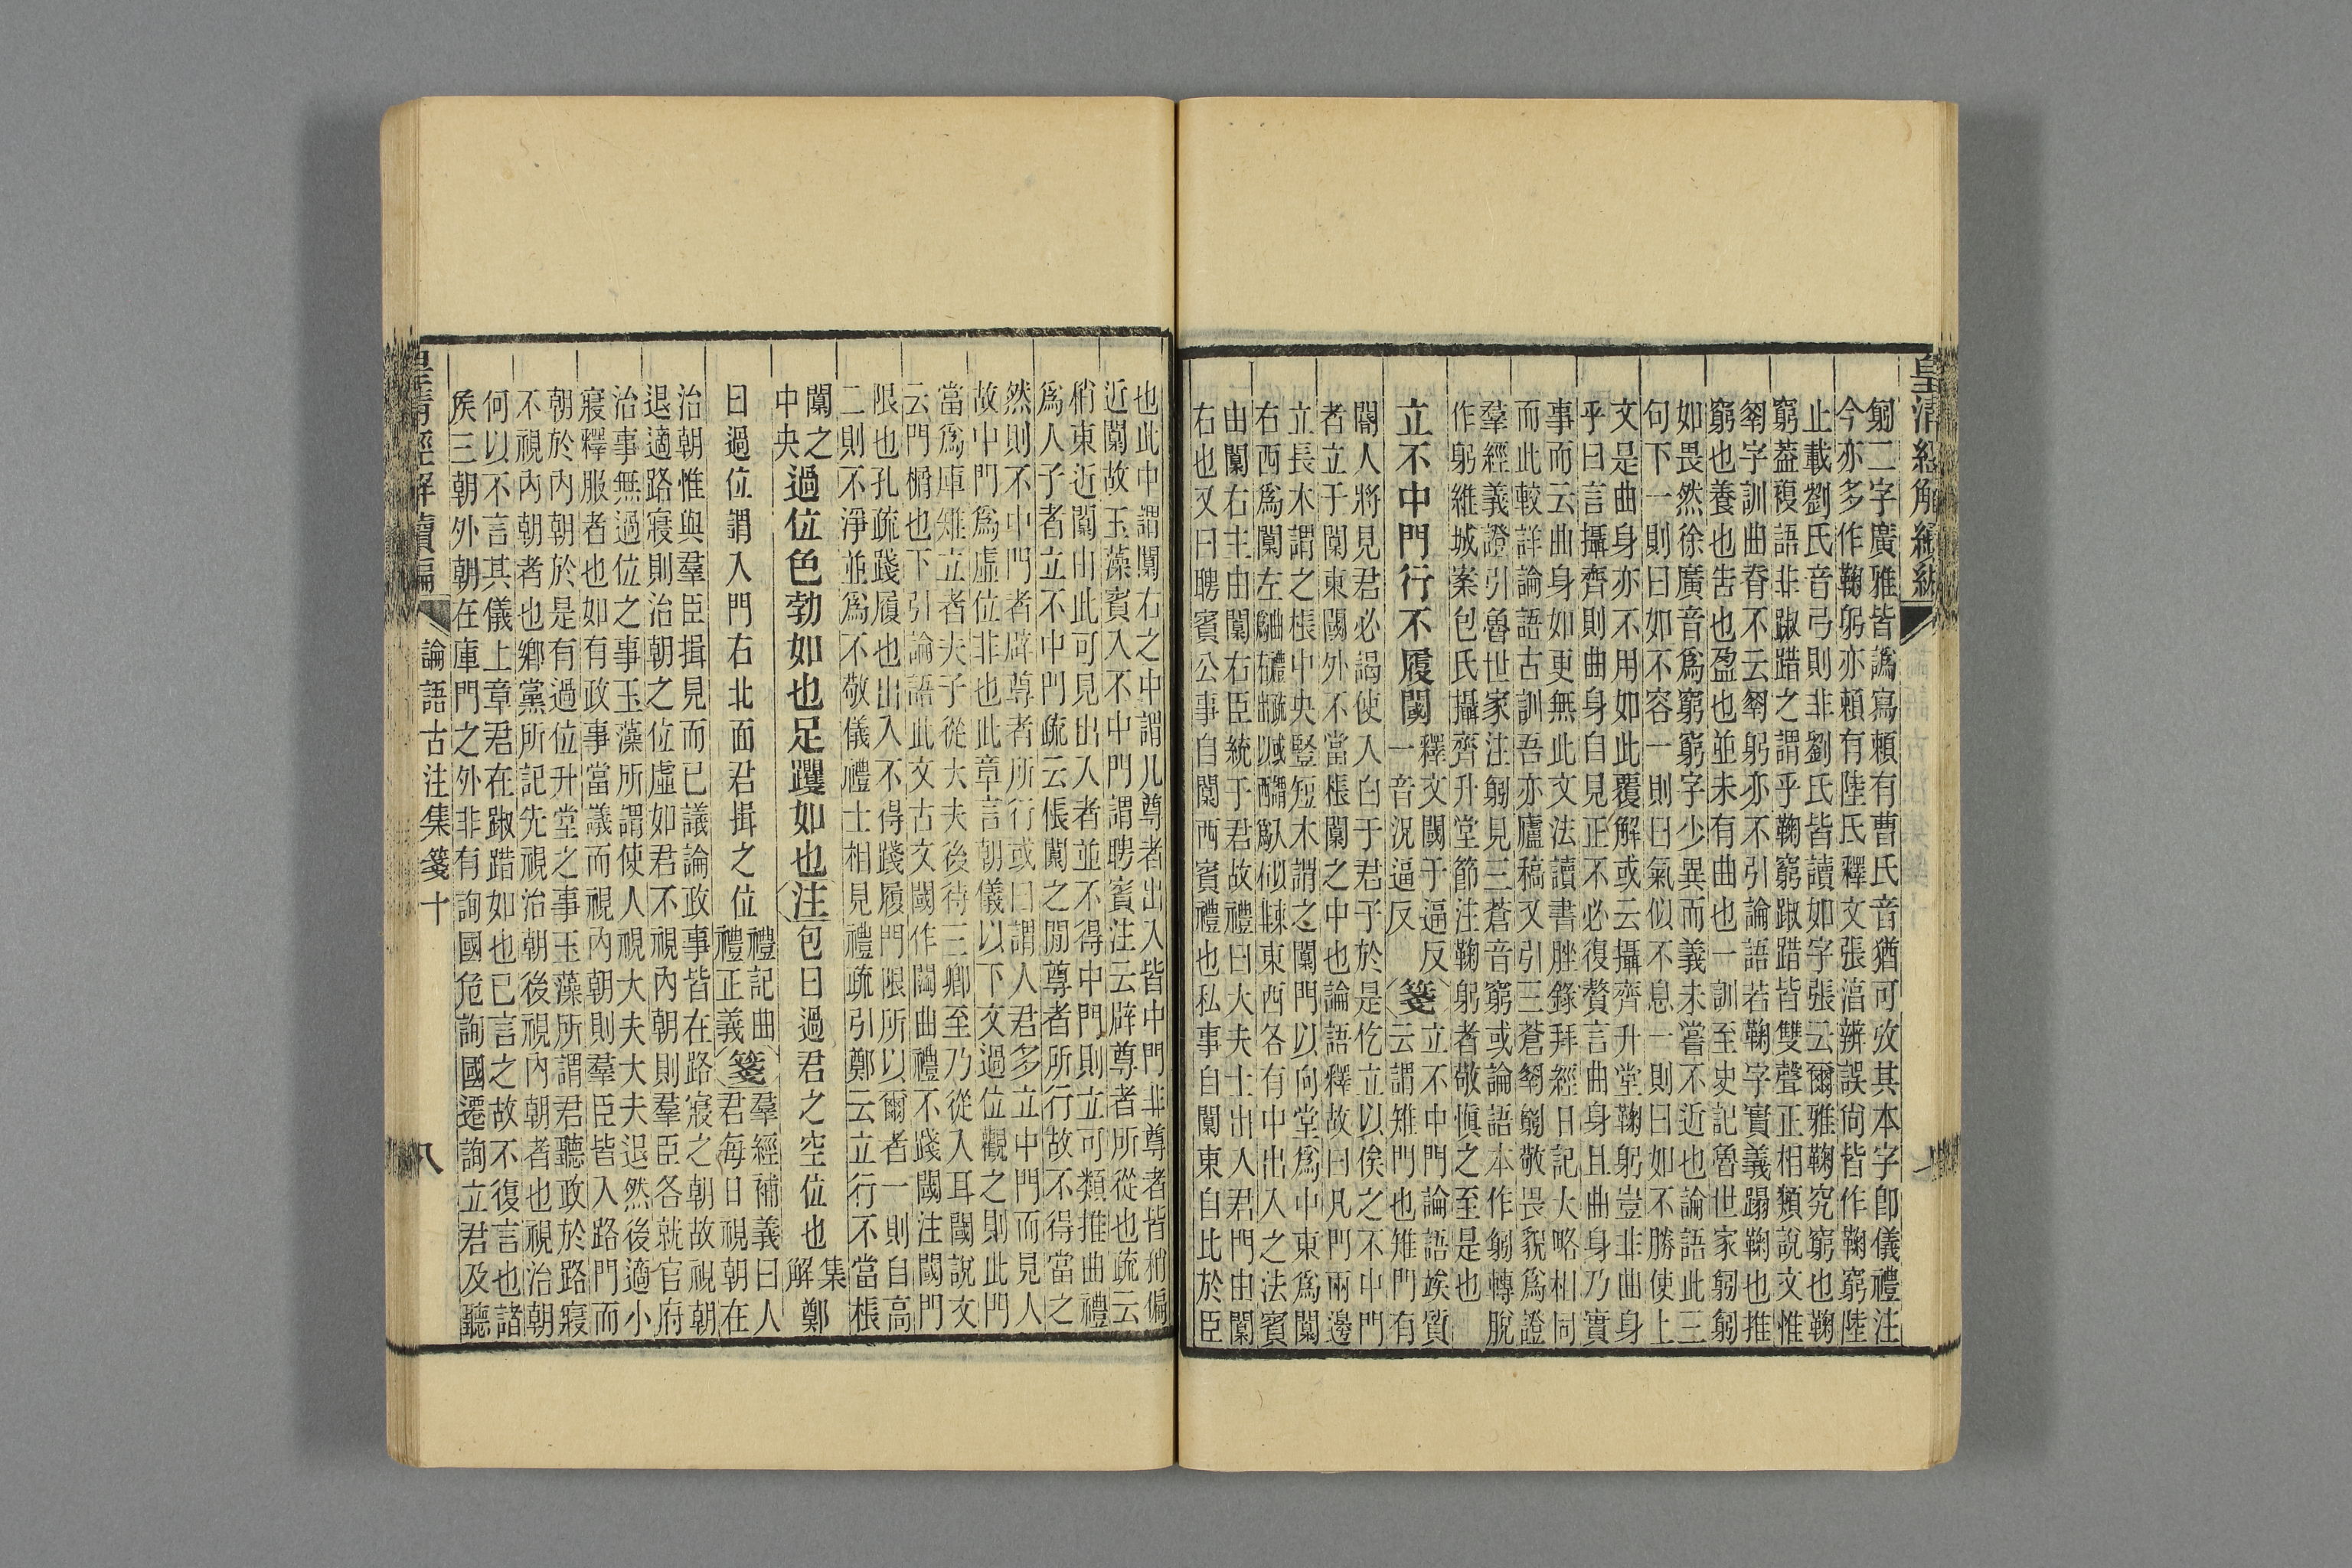 皇清經解續編
躬二字廣雅皆譌寫賴有曹氏音猶可攷其本字卽儀禮注
今亦多作鞠躬亦賴有陸氏釋文張湻辨誤尙皆作鞠窮陸
止載劉氏音弓則非劉氏皆讀如字張云爾雅鞠究窮也鞠
窮葢複語非踧踖之謂乎鞠窮踧踖皆雙聲正相類說文惟
匑字訓曲脊不云匑躬亦不引論語若鞠字實義蹋鞠也推
窮也養也告也盈也並未有曲也一訓至史記魯世家匔匔
如畏然徐廣音爲窮窮字少異而義未嘗不近也論語此三
句下一則曰如不容一則曰氣似不息一則曰如不勝使上
文是曲身亦不用如此覆解或云攝齊升堂鞠躬豈非曲身
乎曰言攝齊則曲身自見正不必復贅言曲身且曲身乃實
事而云曲身如更無此文法讀書脞錄拜經日記大略相同
而此較詳論語古訓吾亦廬稿又引三蒼匑匔敬畏貌爲證
羣經義證引魯世家注匔見三蒼音窮或論語本作匔轉脫
作躬維城案包氏攝齊升堂節注鞠躬者敬愼之至是也
立不中門行不履閾
釋文閾于逼反
一音況逼反
箋
立不中門論語竢質
云謂雉門也雉門有
閽人將見君必謁使入白于君子於是仡立以俟之不中門
者立于闑東闑外不當棖闑之中也論語釋故曰凡門兩邊
立長木謂之棖中央豎短木謂之闑門以向堂爲中東爲闑
東西各有中出入之法賓
由闑右主由闑右臣統于君故禮曰大夫士出入君門由闑
右也又曰聘賓公事自闑西賓禮也私事自闑東自比於臣
也此中謂闑右之中謂凡尊者出入皆中門非尊者皆稍偏
近闑故玉藻賓入不中門謂聘賓注云辟尊者所從也疏云
稍東近闑由此可見出入者並不得中門則立可類推曲禮
爲人子者立不中門疏云棖闑之閒尊者所行故不得當之
然則不中門者辟尊者所行或曰謂人君多立中門而見人
故中門爲虛位非也此章言朝儀以下文過位觀之則此門
當爲庫雉立者夫子從大夫後待三卿至乃從入耳閾說文
云門榍也下引論語此文古文閾作閾曲禮不踐閾注閾門
限也孔疏踐履也出入不得踐履門限所以爾者一則自高
二則不淨並爲不敬儀禮士相見禮疏引鄭云立行不當棖
闑之
中央
過位色勃如也足躩如也
注
包曰過君之空位也
集
解
鄭
曰過位謂入門右北面君揖之位
禮記曲
禮正義
箋
羣經補義曰人
君每日視朝在
治朝惟與羣臣揖見而已議論政事皆在路寢之朝故視朝
退適路寢則治朝之位虛如君不視內朝則羣臣各就官府
治事無過位之事玉藻所謂使人視大夫大夫退然後適小
寢釋服者也如有政事當議而視內朝則羣臣皆入路門而
朝於內朝於是有過位升堂之事玉藻所謂君聽政於路寢
不視內朝者也鄉黨所記先視治朝後視內朝者也視治朝
何以不言其儀上章君在踧踖如也已言之故不復言也諸
侯三朝外朝在庫門之外非有詢國危詢國遷詢立君及聽
皇清經解續編
論語古注集箋十
八